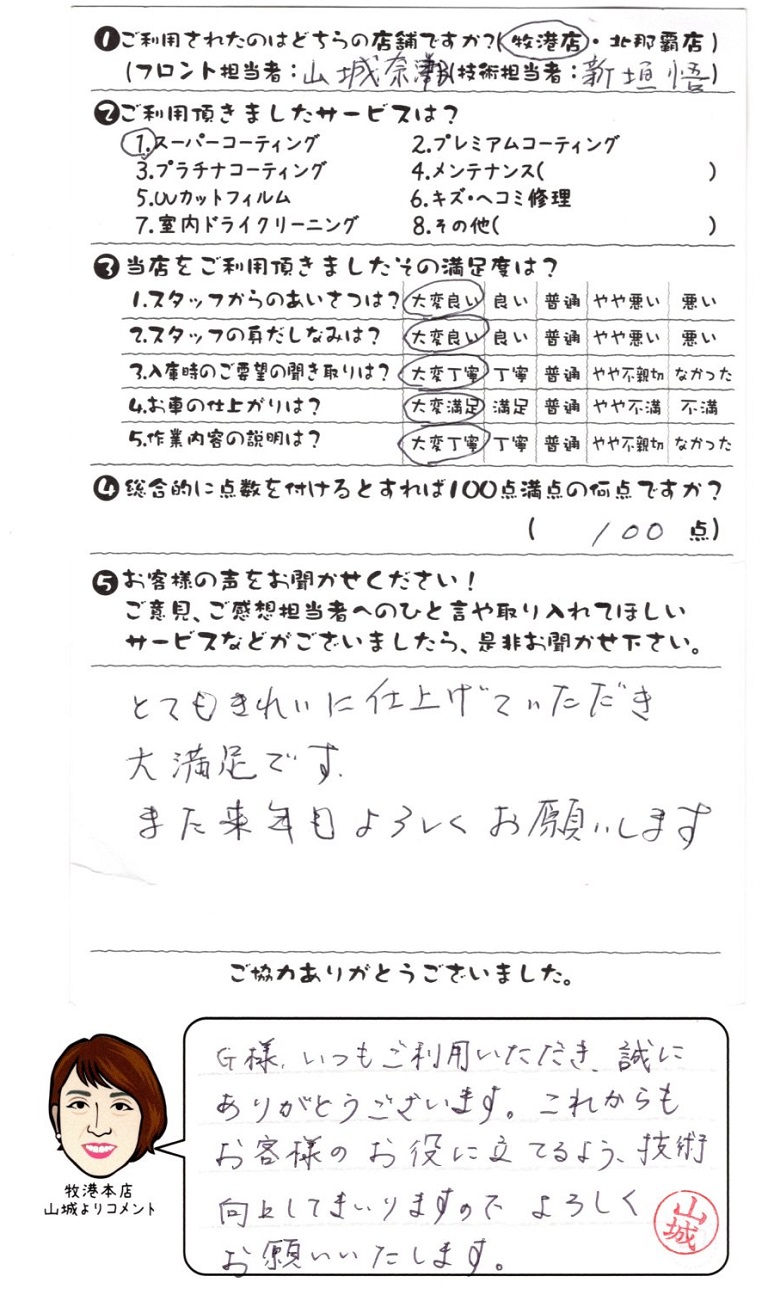 ❶ご利用されたのはどちらの店舗ですか?(牧港店・北那覇店)
(フロント担当者:山城奈 (技術担当者:新垣悟)
❷ご利用頂きましたサービスは?
1.スーパーコーティング 2.プレミアムコーティング
3.プラチナコーティング 4.メンテナンス( )
5.UVカットフィルム 6.キズ・ヘコミ修理
7.室内ドライクリーニング 8.その他( )
❸当店をご利用頂きましたその満足度は?
1.スタッフからのあいさつは? 大変良い 良い 普通 やや悪い 悪い
2.スタッフの身だしなみは? 大変良い 良い 普通 やや悪い 悪い
3.入庫時のご要望の聞き取りは? 大変丁寧 丁寧 普通 やや不親切 なかった
4.お車の仕上がりは? 大変満足 満足 普通 やや不満 不満
5.作業内容の説明は? 大変丁寧 丁寧 普通 やや不親切 なかった
❹総合的に点数を付けるとすれば100点満点の何点ですか?
( 100 点)
❺お客様の声をお聞かせください!
ご意見、ご感想担当者へのひと言や取り入れてほしい
サービスなどがございましたら、是非お聞かせ下さい。
とてもきれいに仕上げていただき
大満足です.
また来年もよろしくお願いします
ご協力ありがとうございました。
G様、いつもご利用いただき、誠に
ありがとうございます。これからも
お客様のお役に立てるよう、技術
向上してまいりますので よろしく
お願いいたします。
山城
牧港本店
山城よりコメント